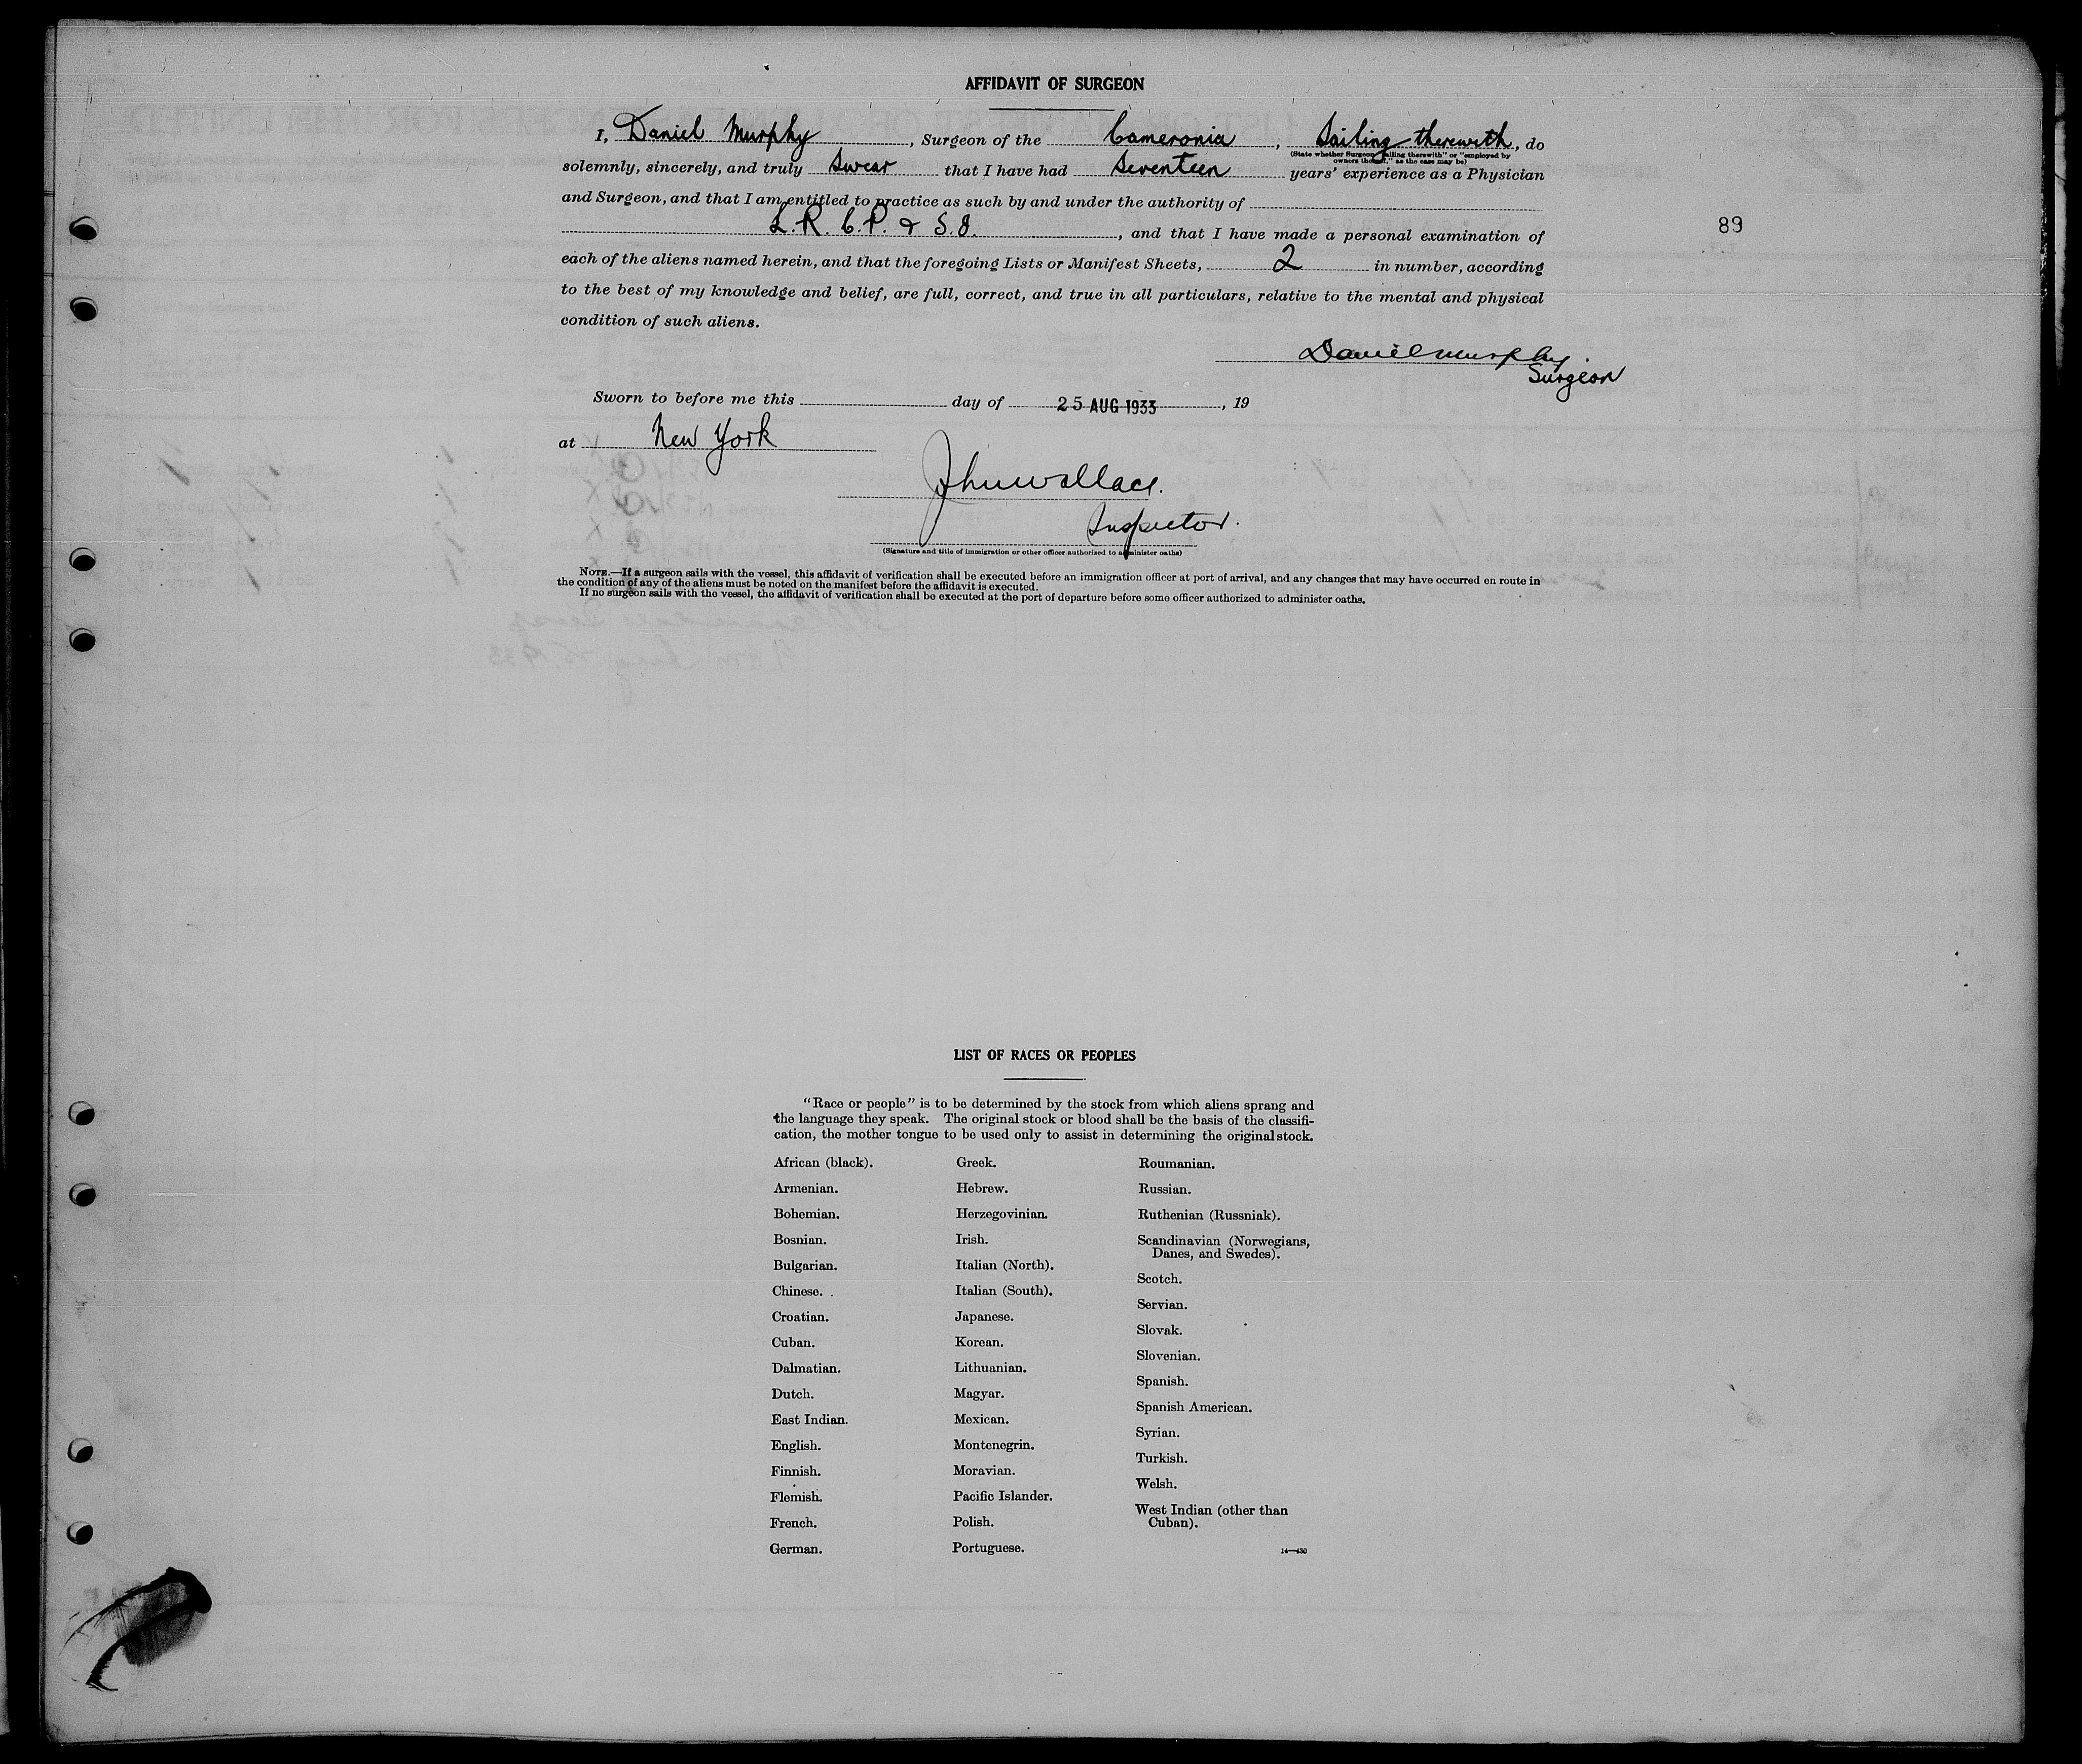 AFFIDAVIT OF SURGEON
I, Daniel Murphy, Surgeon of the Cameronia, Sailing therewith, do
(State whether Surgeon "sailing therewith" or "employed by
owners thereof," as the case may be)
solemnly, sincerely, and truly Swear that I have had Seventeen years' experience as a Physician
and Surgeon, and that I am entitled to practice as such by and under the authority of
L.R.C.P. & S.I., and that I have made a personal examination of
89
each of the aliens named herein, and that the foregoing Lists or Manifest Sheets, 2 in number, according
to the best of my knowledge and belief, are full, correct, and true in all particulars, relative to the mental and physical
condition of such aliens.
Daniel Murphy.
Surgeon
Sworn to before me this day of 25 AUG 1933, 19
at New York
Jhn Wallace.
Inspector.
(Signature and title of immigration or other officer authorized to administer oaths)
NOTE.—If a surgeon sails with the vessel, this affidavit of verification shall be executed before an immigration officer at port of arrival, and any changes that may have occurred en route in
the condition of any of the aliens must be noted on the manifest before the affidavit is executed.
If no surgeon sails with the vessel, the affidavit of verification shall be executed at the port of departure before some officer authorized to administer oaths.
LIST OF RACES OR PEOPLES
"Race or people" is to be determined by the stock from which aliens sprang and
the language they speak. The original stock or blood shall be the basis of the classifi-
cation, the mother tongue to be used only to assist in determining the original stock.
African (black).
Armenian.
Bohemian.
Bosnian.
Bulgarian.
Chinese.
Croatian.
Cuban.
Dalmatian.
Dutch.
East Indian.
English.
Finnish.
Flemish.
French.
German.
Greek.
Hebrew.
Herzegovinian.
Irish.
Italian (North).
Italian (South).
Japanese.
Korean.
Lithuanian.
Magyar.
Mexican.
Montenegrin.
Moravian.
Pacific Islander.
Polish.
Portuguese.
Roumanian.
Russian.
Ruthenian (Russniak).
Scandinavian (Norwegians,
Danes, and Swedes).
Scotch.
Servian.
Slovak.
Slovenian.
Spanish.
Spanish American.
Syrian.
Turkish.
Welsh.
West Indian (other than
Cuban).
14—430